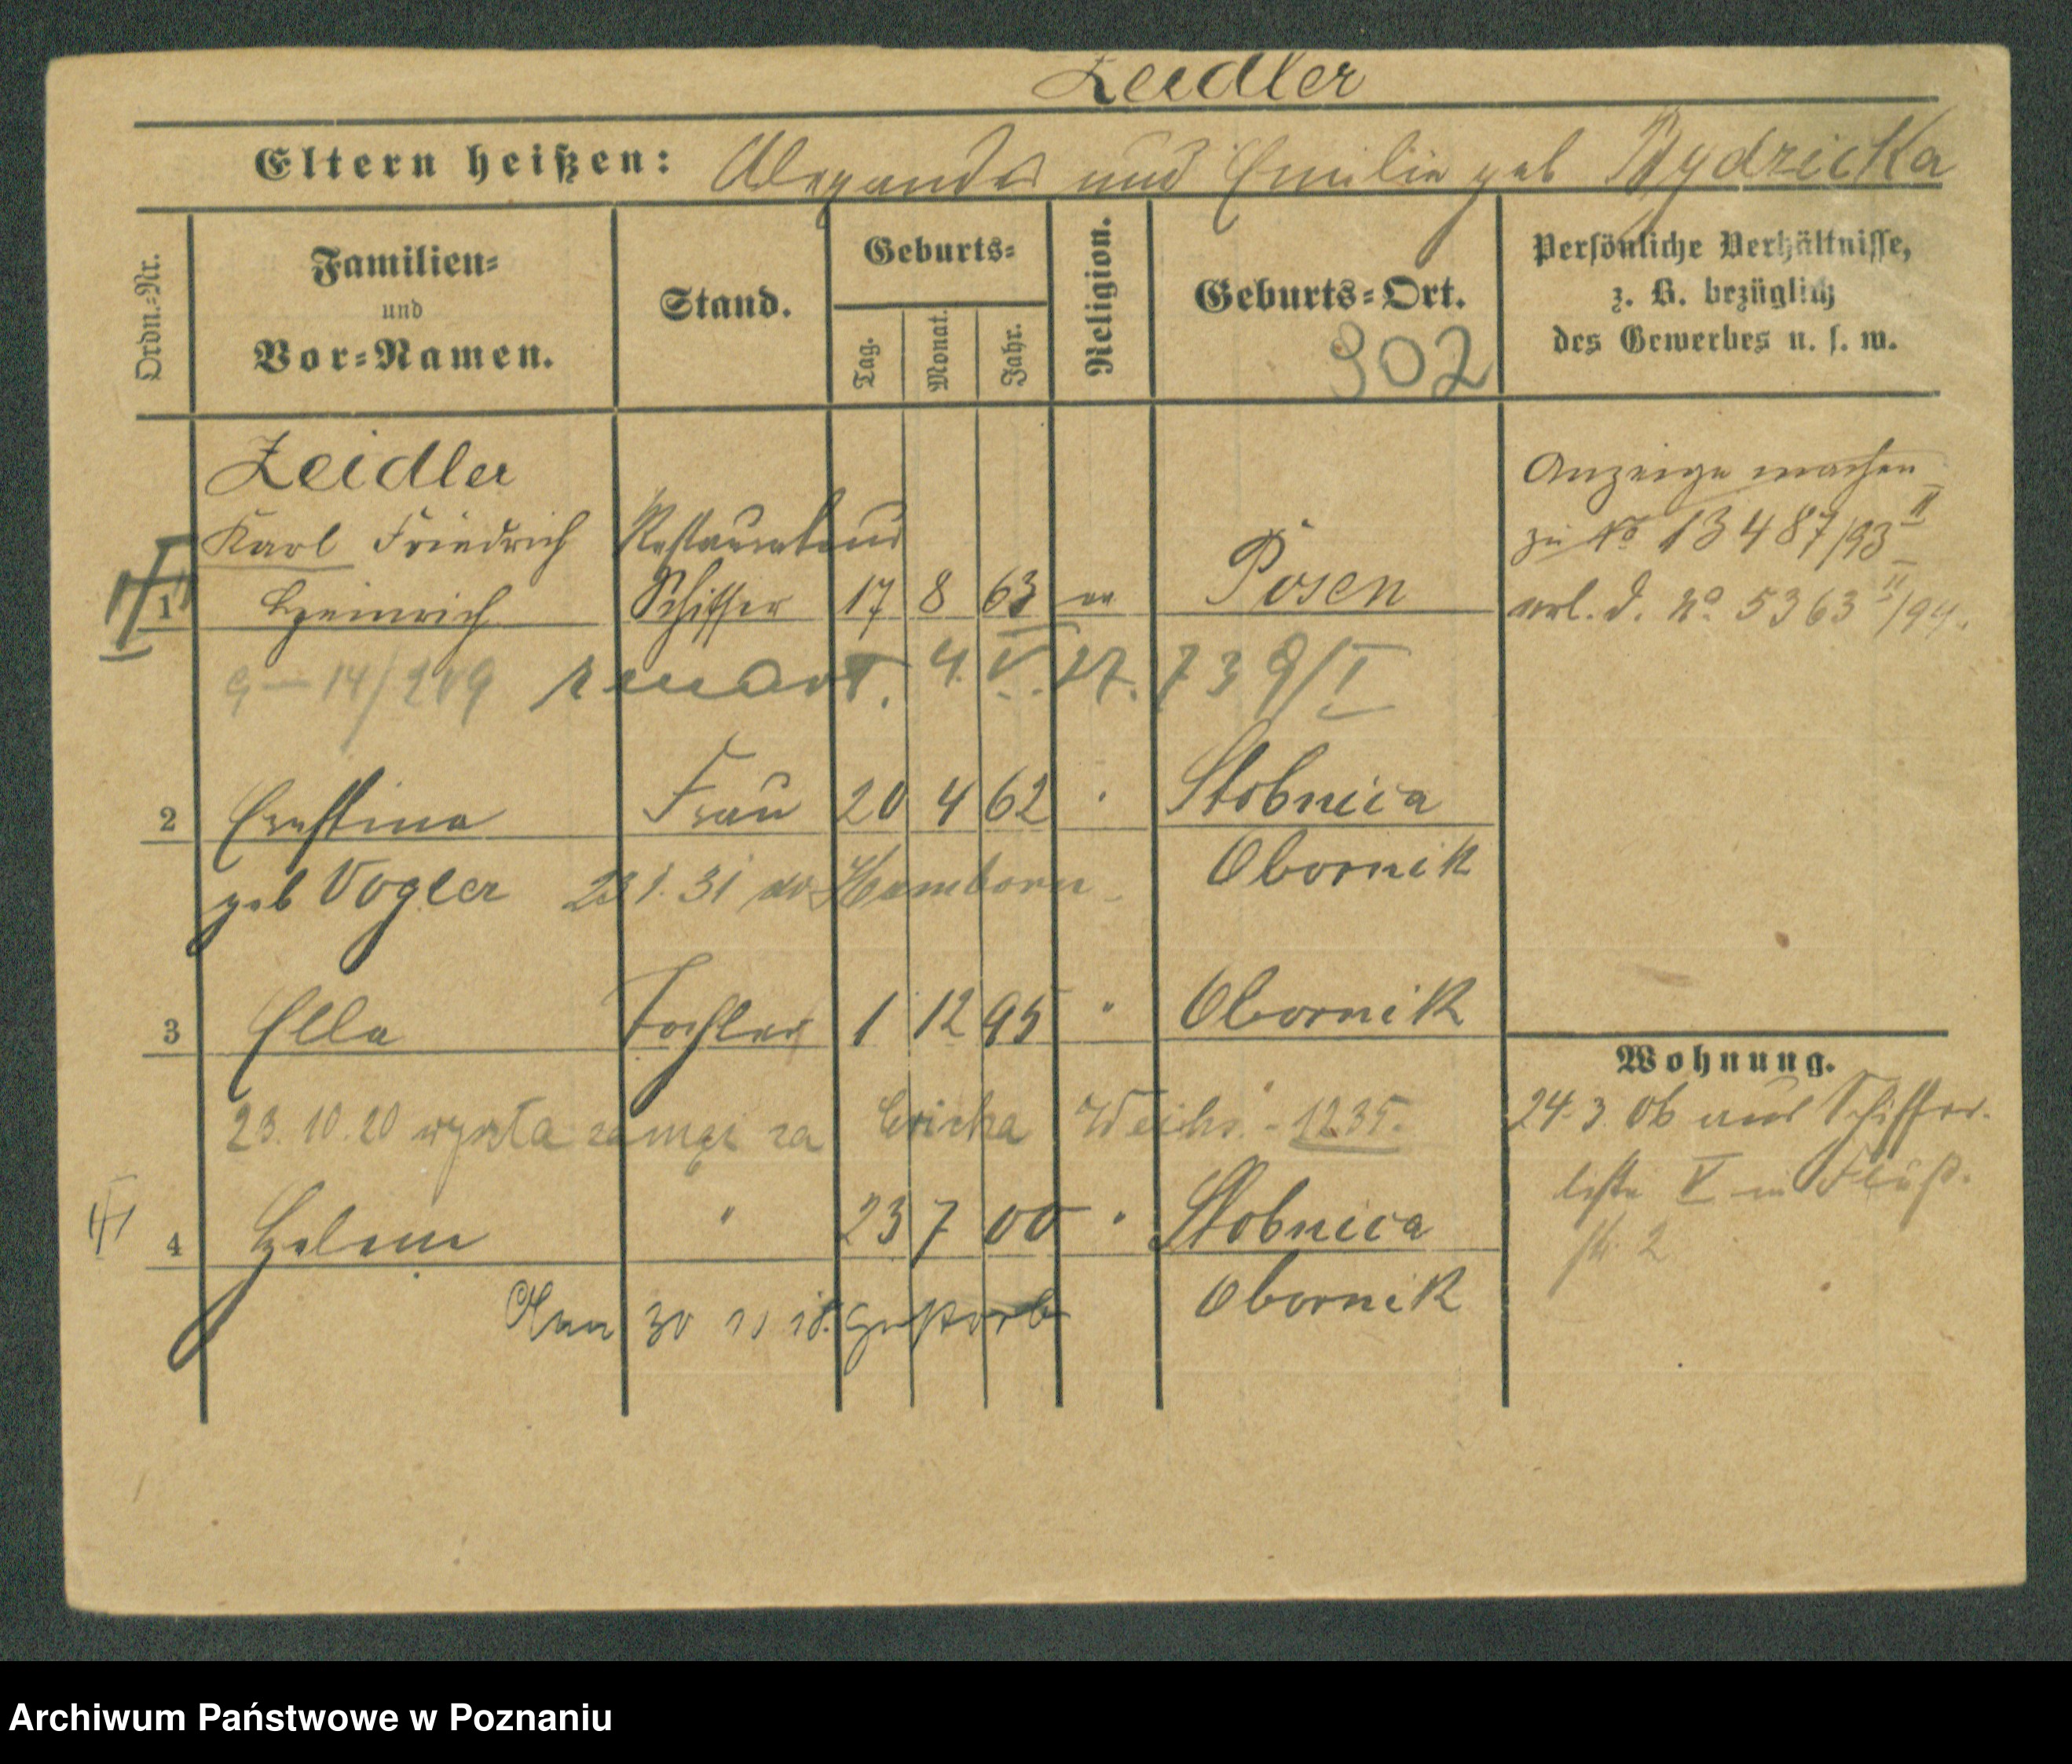 Zeidler
Eltern heißen: Alexander und Emilie geb Rydzicka
Ordn.-Nr.
Familien-
und
Vor-Namen.
Stand.
Geburts-
Tag.
Monat.
Jahr.
Religion.
Geburts-Ort.
902
Persönliche Verhältnisse,
z. B. bezüglich
des Gewerbes u. s. w.
Zeidler
Karl Friedrich Restaurateur
1 Heinrich Schiffer 17 8 63 ev Posen
Anzeige machen
zu No 13487/93 II
erl. d. No 5363 II/94.
G-14/209 zmarł. 4. V. 27. 739/I
2 Ernstine Frau 20 4 62 " Stobnica
geb Vogler 23 1. 31 do Hamborn Obornik
3 Ella Tochter 1 12 95 " Obornik
23.10.20 wyszła zamąż za Ericha Weihs. - 1235.
4 Helene " 23 7 00 " Stobnica
30 11 18. gestorb Obornik
Wohnung.
24.3 06 aus Schiffer-
liste V in Fluß-
str. 2
Archiwum Państwowe w Poznaniu